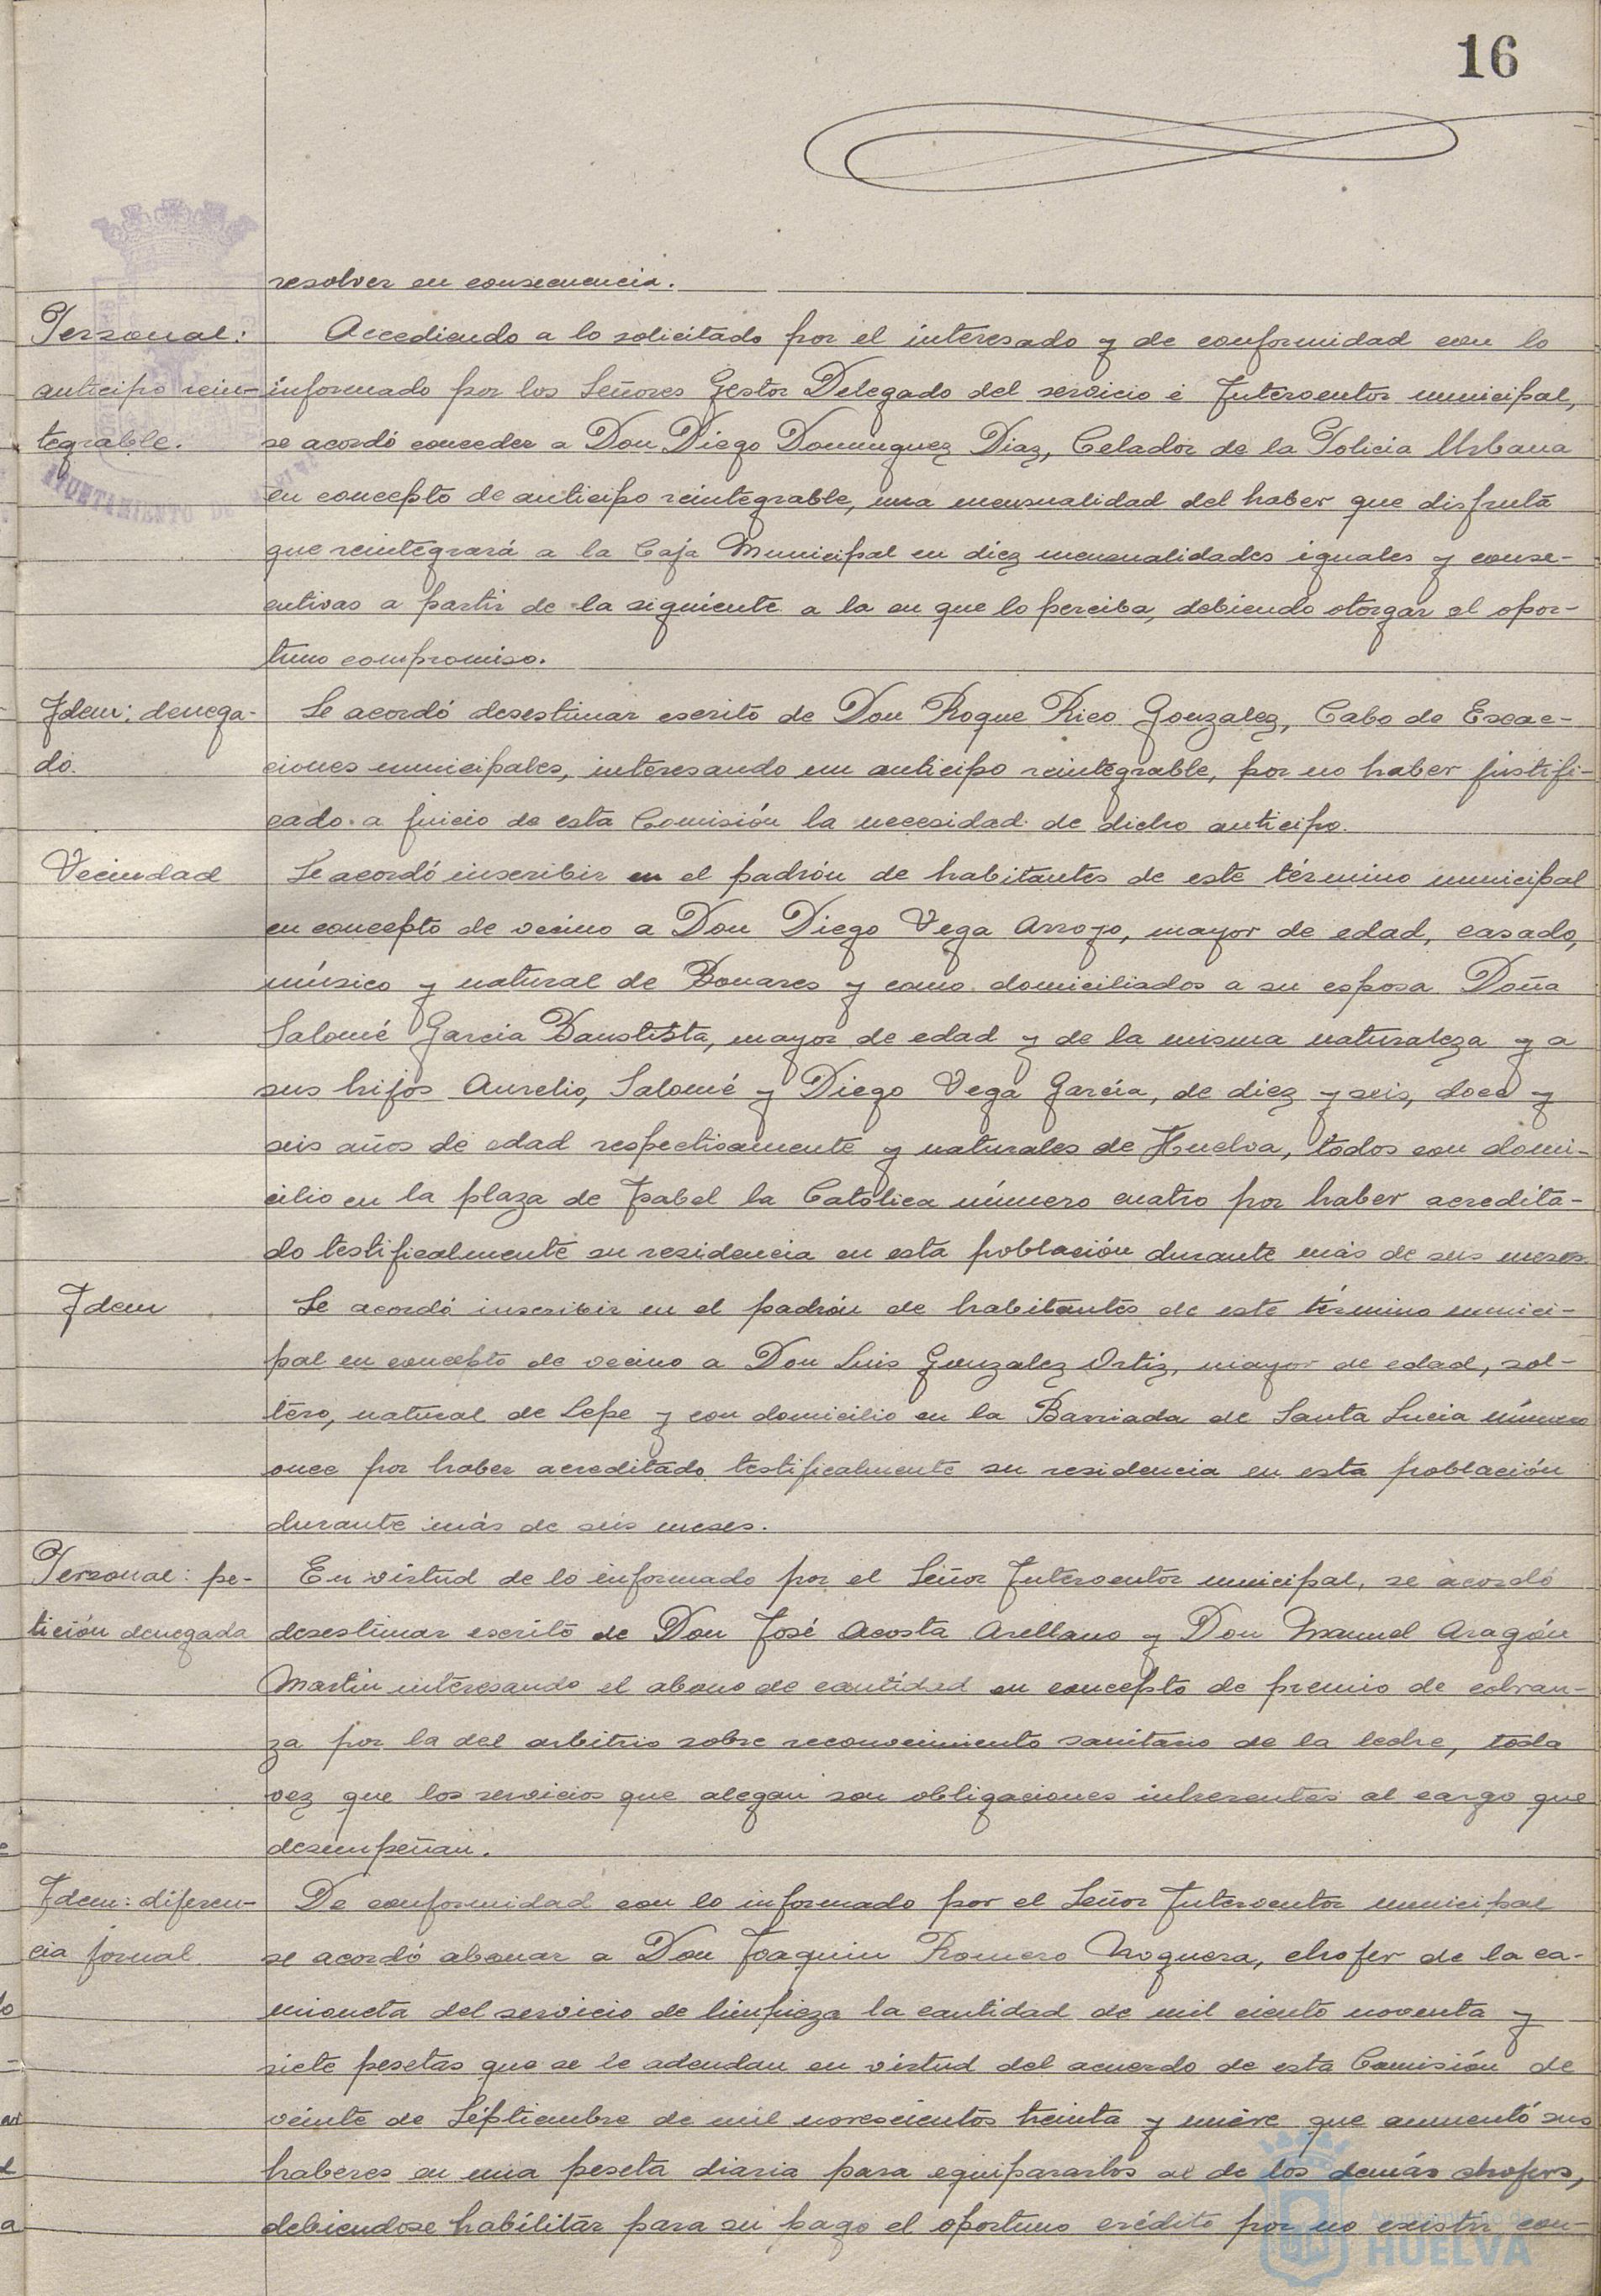 16
resolver en consecuencia.
Personal: Accediendo a lo solicitado por el interesado y de conformidad con lo
anticipo rein- informado por los Señores Gestor Delegado del servicio é Interventor municipal,
tegrable. se acordó conceder a Don Diego Dominguez Diaz, Celador de la Policia Urbana
en concepto de anticipo reintegrable, una mensualidad del haber que disfruta
que reintegrará a la Caja Municipal en diez mensualidades iguales y conse-
cutivas a partir de la siguiente a la en que lo perciba, debiendo otorgar el opor-
tuno compromiso.
Idem: denega- Se acordó desestimar escrito de Don Roque Rico Gonzalez, Cabo de Exac-
do. ciones municipales, interesando un anticipo reintegrable, por no haber justifi-
cado a juicio de esta Comisión la necesidad de dicho anticipo.
Vecindad Se acordó inscribir en el padrón de habitantes de este término municipal
en concepto de vecino a Don Diego Vega Arroyo, mayor de edad, casado,
músico y natural de Bonares y como domiciliados a su esposa Doña
Salomé Garcia Baustista, mayor de edad y de la misma naturaleza y a
sus hijos Aurelio, Salomé y Diego Vega García, de diez y seis, doce y
seis años de edad respectivamente y naturales de Huelva, todos con domi-
cilio en la plaza de Isabel la Católica número cuatro por haber acredita-
do testificalmente su residencia en esta población durante más de seis meses.
Idem Se acordó inscribir en el padrón de habitantes de este término munici-
pal en concepto de vecino a Don Luis Gonzalez Ortiz, mayor de edad, sol-
tero, natural de Lepe y con domicilio en la Barriada de Santa Lucia número
once por haber acreditado testificalmente su residencia en esta población
durante más de seis meses.
Personal: pe- En virtud de lo informado por el Señor Interventor municipal, se acordó
tición denegada desestimar escrito de Don José Acosta Arellano y Don Manuel Aragón
Martin interesando el abono de cantidad en concepto de premio de cobran-
za por la del arbitrio sobre reconocimiento sanitario de la leche, toda
vez que los servicios que alegan son obligaciones inherentes al cargo que
desempeñan.
Idem: diferen- De conformidad con lo informado por el Señor Interventor municipal
cia jornal. se acordó abonar a Don Joaquin Romero Noguera, chofer de la ca-
mioneta del servicio de limpieza la cantidad de mil ciento noventa y
siete pesetas que se le adeudan en virtud del acuerdo de esta Comisión de
veinte de Séptiembre de mil novescientos treinta y nueve que aumentó sus
haberes en una peseta diaria para equipararlos al de los demás chofers,
debiendose habilitar para su pago el oportuno crédito por no existir con-
AYUNTAMIENTO DE
Ayuntamiento de
HUELVA